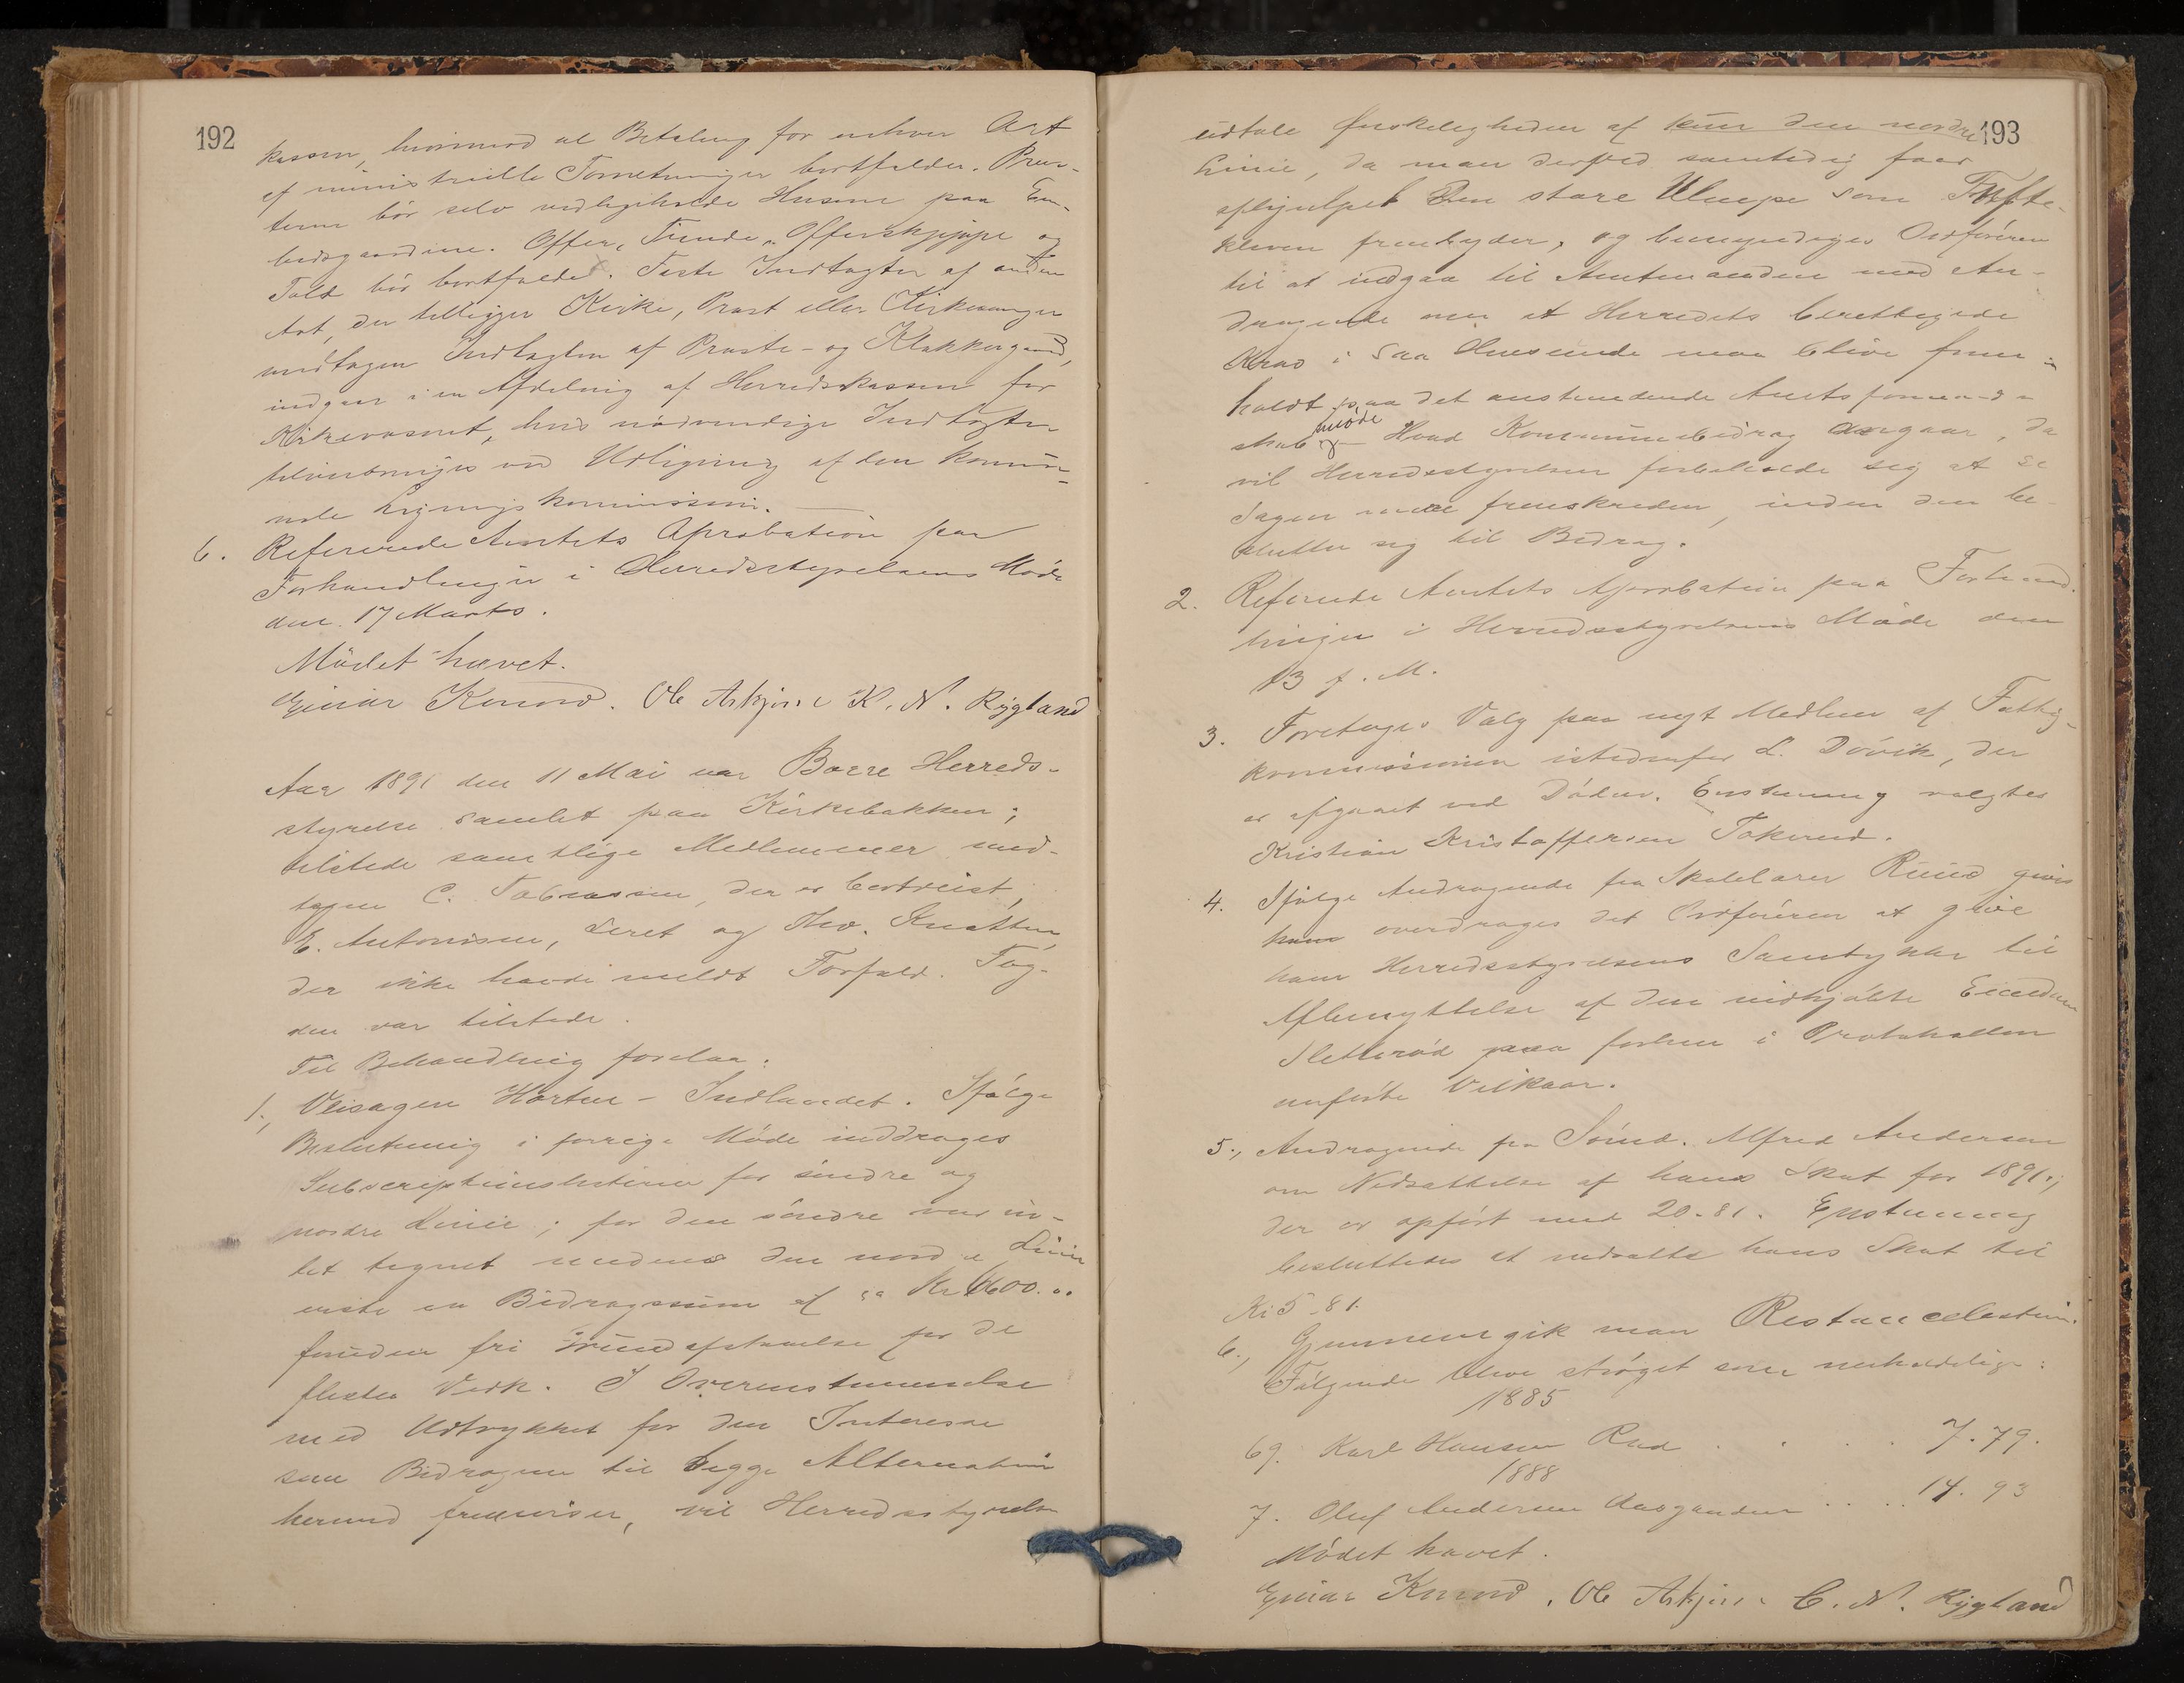 192
kassen, hvorimod al Betaling for enhver Art
af ministrielle Forretninger bortfalder. Præs-
terne bör selv vedligeholde Husene paa Em-
bedsgaardene. Offer, Tiende, Offerskjæppe og
Told bör bortfalde. Faste Indtægter af anden
Art, der tilligger Kirke, Præst eller Kirkesanger
undtagen Indtægten af Præste- og Klokkergaard,
indgaar i en Afdeling af Herredskassen for
Kirkevæsenet, hvis nödvendige Indtægter
tilveiebringes ved Udligning af den kommu-
nale Ligningskommission.
6. Refererede Amtets Aprobation paa
Forhandlinger i Herredsstyrelsens Möde
den 17 Marts.
Mödet hævet.
Ejnar Konow. Ole Askjær K. N. Rygland
Aar 1891 den 11 Mai var Borre Herreds-
styrelse samlet paa Kirkebakken;
tilstede samtlige Medlemmer und-
tagen C. Tobiassen, der er bortreist,
E. Antonisen, Leret og Thv. Knatten,
der ikke havde meldt Forfald. Fog-
den var tilstede.
Til Behandling forelaa:
1., Veisagen Horten - Indlandet. Ifölge
Beslutning i forrige Möde inddrages
Subscriptionslisterne for söndre og
nordre Linie; for den söndre var in-
tet tegnet medens den nordre Linie
viste en Bidragssum af ca Kr 1600.00
foruden fri Grundafstaaelse for de
flestes Vedk. I Overensstemmelse
med Udtrykket for den Interesse
som Bidragene til begge Alternativer
herved fremviser, vil Herredsstyrelsen
193
udtale Önskeligheden af kun den nordre
Linie, da man derved samtidig faar
afhjulpet den store Ulempe som
kleven frembyder, og bemyndiges Ordföreren
til at indgaa til Amtmanden med An-
dragende om at Herredets berettigede
Krav i saa Henseende maa blive frem-
holdt paa det anstundende Amtsformand-
skabsmöde Hvad Kommunebidrag angaar, da
vil Herredsstyrelsen forbeholde sig at se
Sagen mere fremskreden, inden den be-
slutter sig til Bidrag.
2. Refererede Amtets Approbation paa Forhand-
linger i Herredsstyrelsens Möde den
13 f. M.
3. Foretages Valg paa nyt Medlem af Fattig-
kommissionen istedenfor L. Dövik, der
er afgaaet ved Döden. Enstemmig valgtes
Kristian Kristoffersen Tokerud.
4. Ifölge Andragende fra Skolelærer Ruud
overdrages det Ordföreren at give
ham Herredsstyrelsens Samtykke til
Afbenyttelse af den indkjöbte Eiendom
Sletteröd paa forhen i Protokollen
anförte Vilkaar.
5., Andragende fra Sömd. Alfred Andersen
om Nedsættelse af hans Skat for 1891,
der er opfört med 20.81. Enstemmig
besluttedes at nedsætte hans Skat til
Kr 5.81.
6., Gjennemgik man Restancelisten.
Fölgende blive ströget som uerholdelige:
1885
69. Karl Hansen Rød . . . . 7.79.
1888
7. Oluf Andersen Aasgaarden . . . . 14.93
Mödet hævet.
Ejnar Konow. Ole Askjær C. N. Rygland